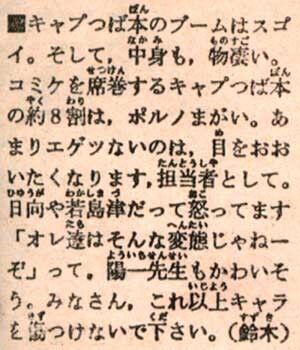 キャプつば本のブームはスゴ
イ。そして,中身も,物凄い。
コミケを席巻するキャプつば本
の約8割は,ポルノまがい。あ
まりエゲツないのは,目をおお
いたくなります,担当者として。
日向や若島津だって怒ってます
「オレ達はそんな変態じゃねー
ぞ」って。陽一先生もかわいそ
う。みなさん,これ以上キャラ
を傷つけないで下さい。(鈴木)